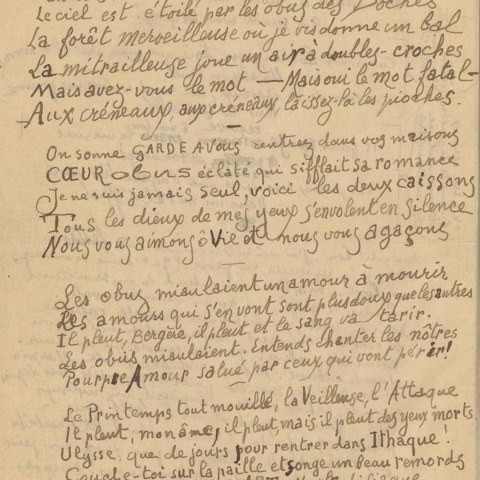 Le ciel est étoilé par les obus des Boches
La forêt merveilleuse où je vis donne un bal
La mitrailleuse joue un air à doubles-croches
Mais avez-vous le mot — Mais oui le mot fatal —
Aux créneaux, aux créneaux, laissez-là les pioches.
On sonne GARDE A VOUS rentrez dans vos maisons
CŒUR obus éclaté qui sifflait sa romance
Je ne suis jamais seul, voici les deux caissons
Tous les dieux de mes yeux s'envolent en silence
Nous vous aimons ô Vie et nous vous agaçons
Les obus miaulaient un amour à mourir
Les amours qui s'en vont sont plus doux que les autres
Il pleut, Bergère, il pleut et le sang va tarir.
Les obus miaulaient. Entends chanter les nôtres
Pourpre Amour salué par ceux qui vont périr!
Le Printemps tout mouillé, la Veilleuse, l'Attaque
Il pleut, mon âme, il pleut, mais il pleut des yeux morts
Ulysse, que de jours pour rentrer dans Ithaque!
Couche-toi sur la paille et songe un beau remords